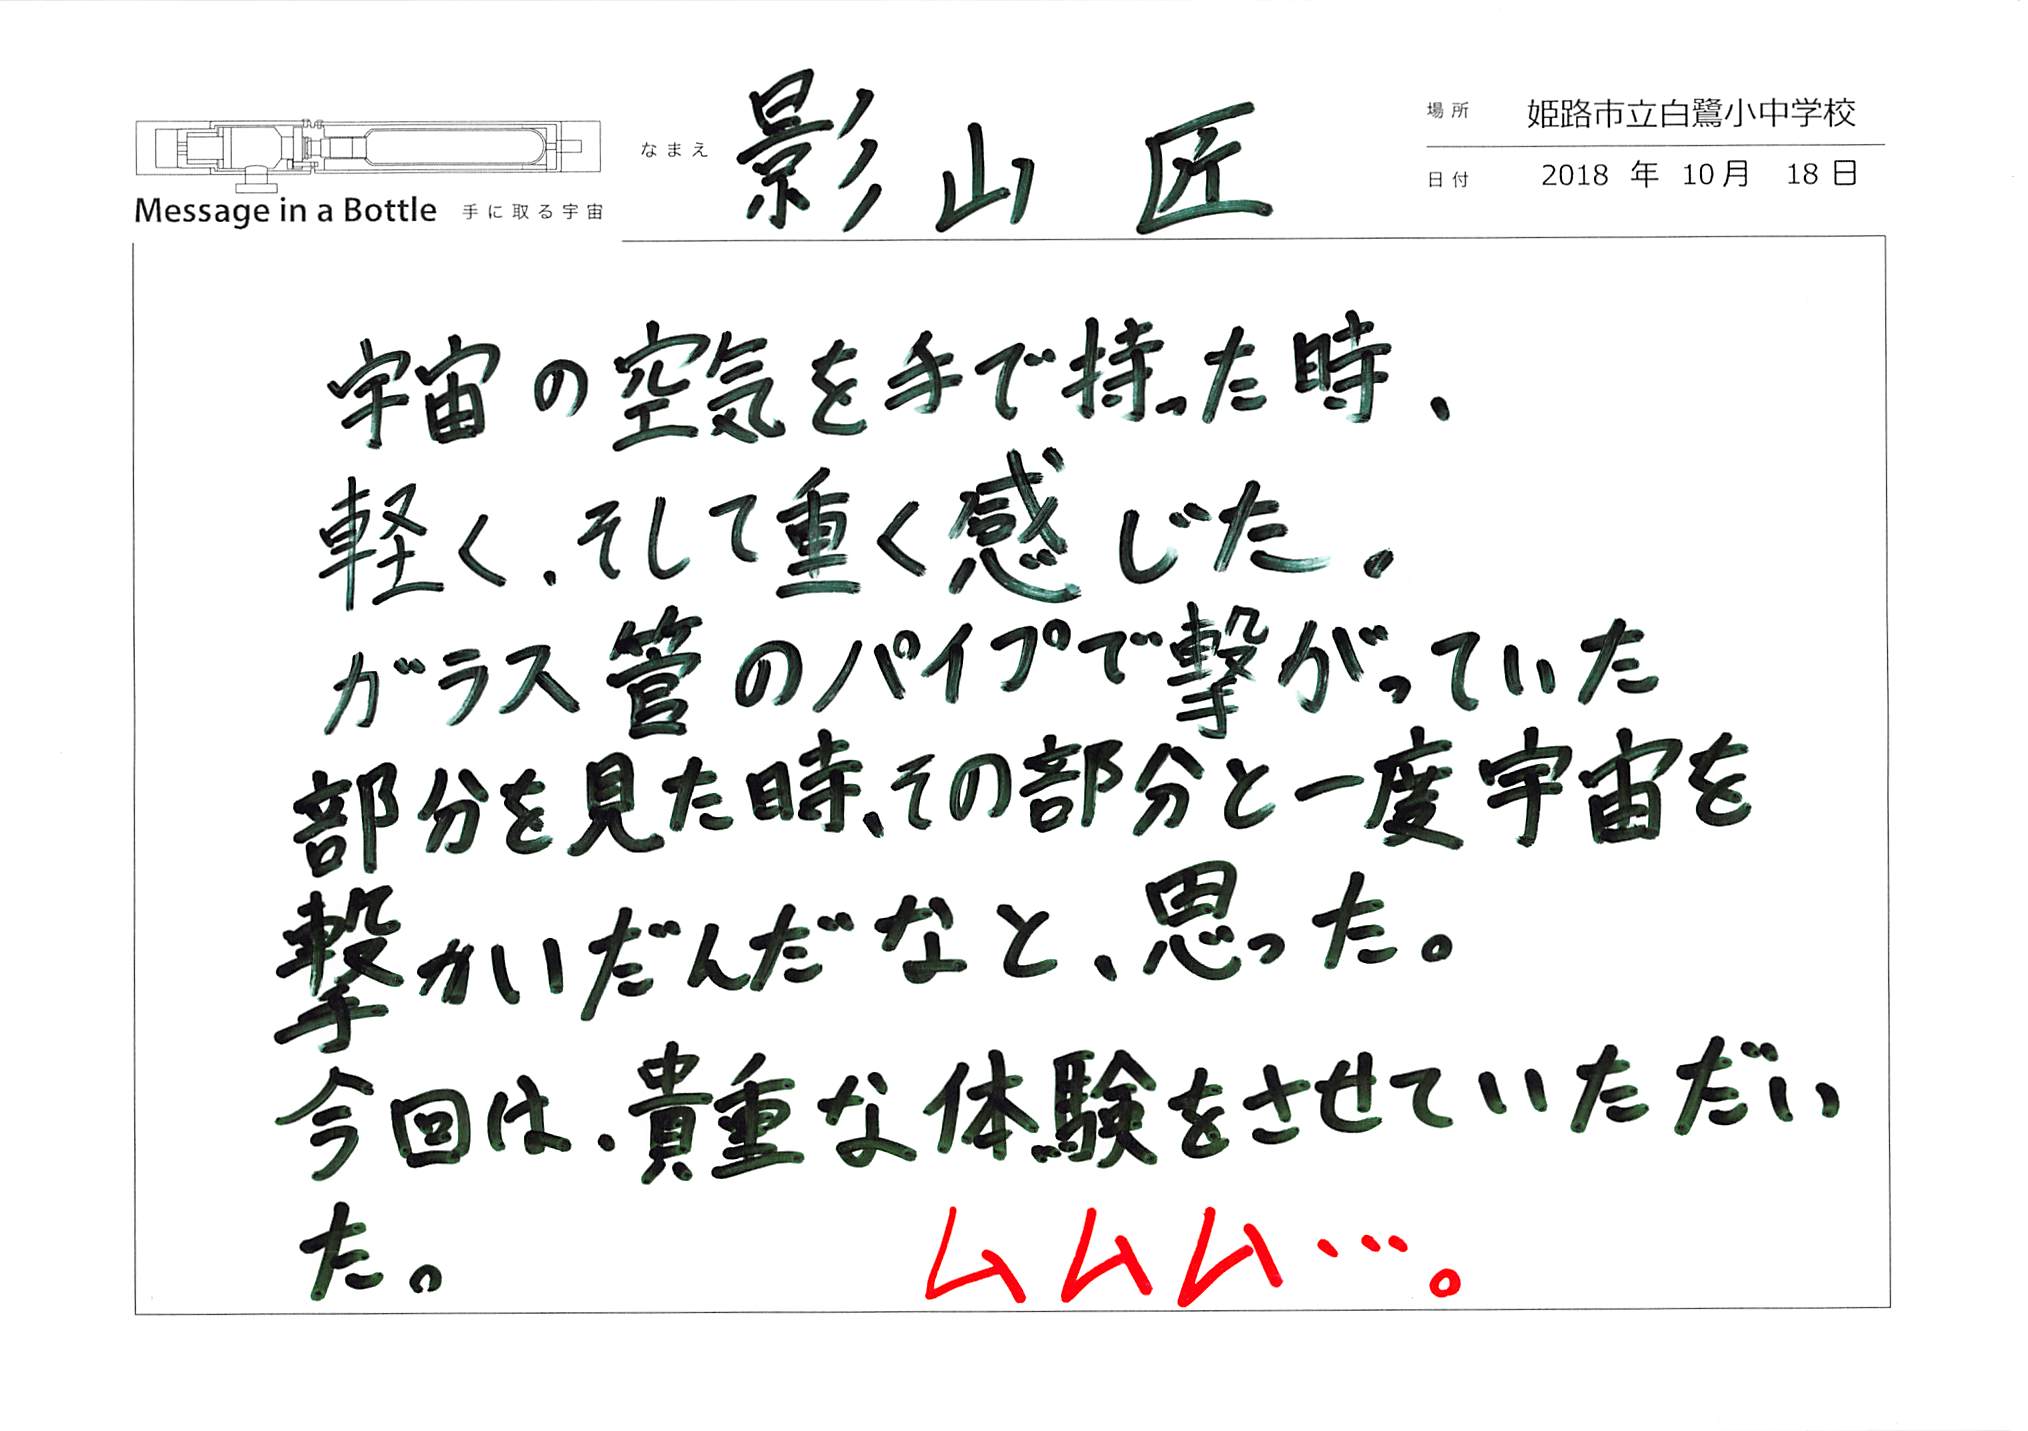 Message in a Bottle 手に取る宇宙
なまえ 影山 匠
場所 姫路市立白鷺小中学校
日付 2018 年 10月 18日
宇宙の空気を手で持った時、
軽く、そして重く感じた。
ガラス管のパイプで撃がっていた
部分を見た時、その部分と一度宇宙を
撃かいだんだなと、思った。
今回は、貴重な体験をさせていただい
た。
ムムム…。